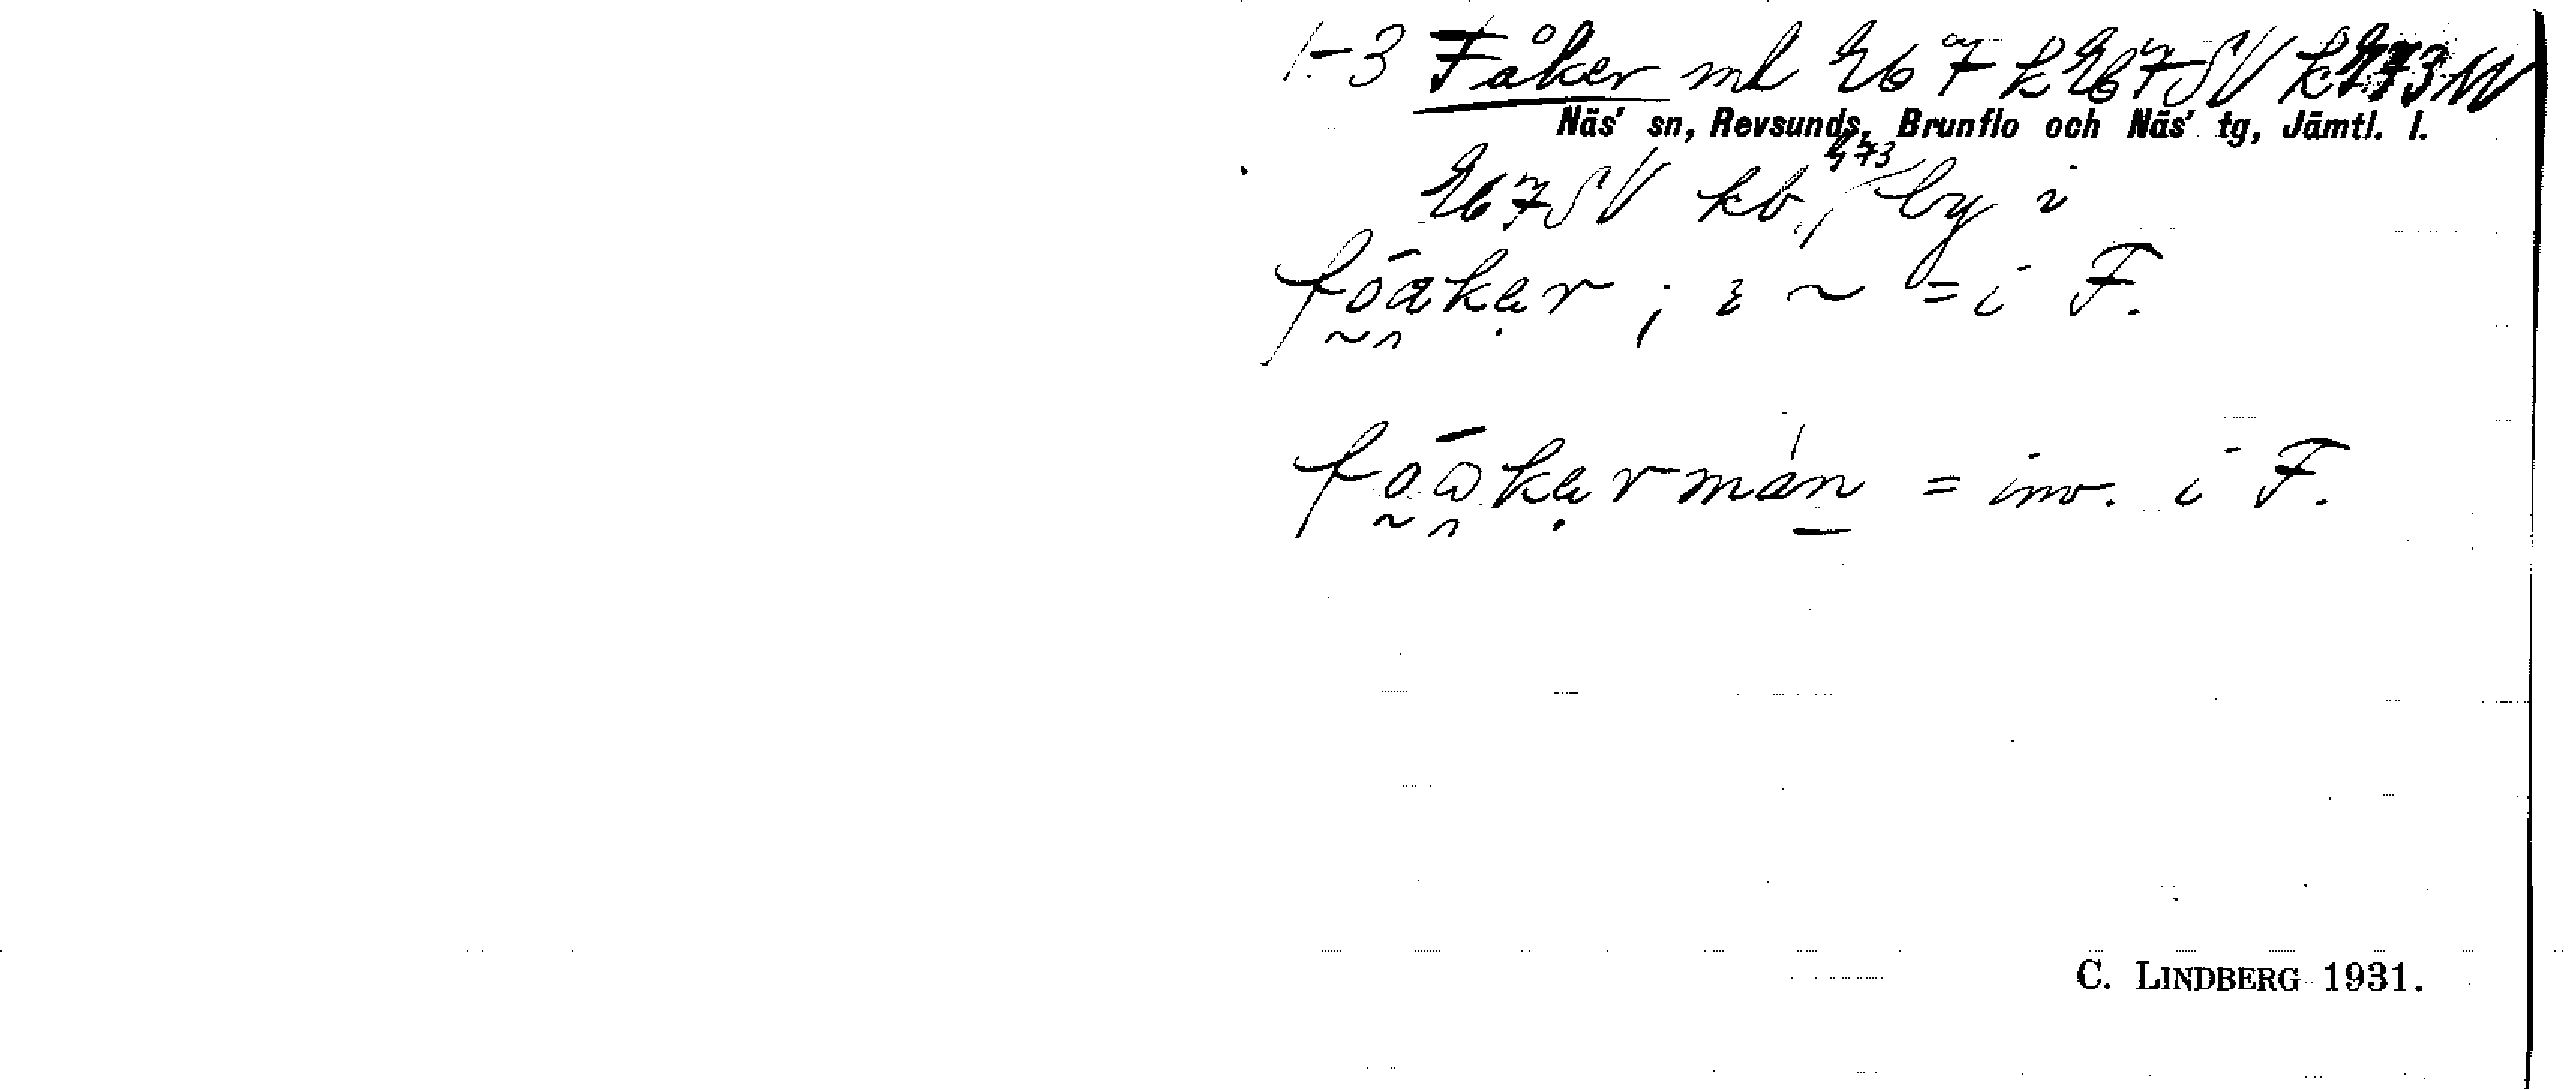 1-3 Fåker ml Eb 7 k Eb7SV k E73NV
Näs' sn, Revsunds, Brunflo och Näs' tg, Jämtl. l.
Eb7SV kb, by i
fōaker ; i ~ = i F.
fōakermàn = inv. i F.
C. LINDBERG 1931.